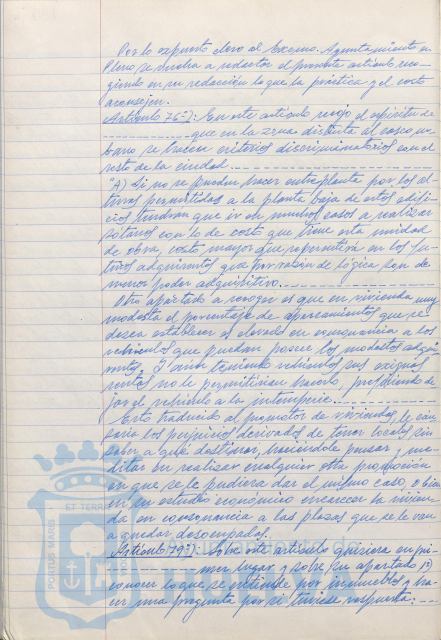 Por lo expuesto elevo al Excmo. Ayuntamiento en
Pleno se vuelva a redactar el presente artículo reco-
giendo en su redacción lo que la práctica y el costo
aconsejen.
Artículo 76º): En este artículo recojo el espíritu de
que en la zona distinta al casco ur-
bano se hacen criterios discriminatorios con el
resto de la ciudad.
"A) Si no se pueden hacer entreplanta por las al-
turas permitidas a la planta baja de estos edifi-
cios tendrán que ir en muchos casos a realizar
sótanos con lo de costo que tiene esta unidad
de obra, costo mayor que repercutirá en los fu-
turos adquirentes que por razón de lógica son de
menos poder adquisitivo.
Otro apartado a recoger es que en vivienda muy
modesta el porcentaje de aparcamientos que se
desea establecer es elevado en consonancia a los
vehículos que puedan poseer los modestos adqui-
rentes. Y aún teniendo vehículos sus exiguas
rentas no le permitirían hacerlo, prefiriendo de-
jar el vehículo a la intemperie.
Esto traducido al promotor de viviendas, le cau-
saría los perjuicios derivados de tener locales sin
saber a qué destinar, haciéndole pensar y me-
ditar en realizar cualquier otra promoción
en que se le pudiera dar el mismo caso, o bien
en su estudio económico encarecer la vivien-
da en consonancia a las plazas que se le van
a quedar desocupadas.
Artículo 79º): Sobre este artículo quisiera en pri-
mer lugar y sobre su apartado 1º)
conocer lo que se entiende por inmuebles y ha-
cer una pregunta por si tuviese respuesta:
PORTUS MARIS
ET TERRA